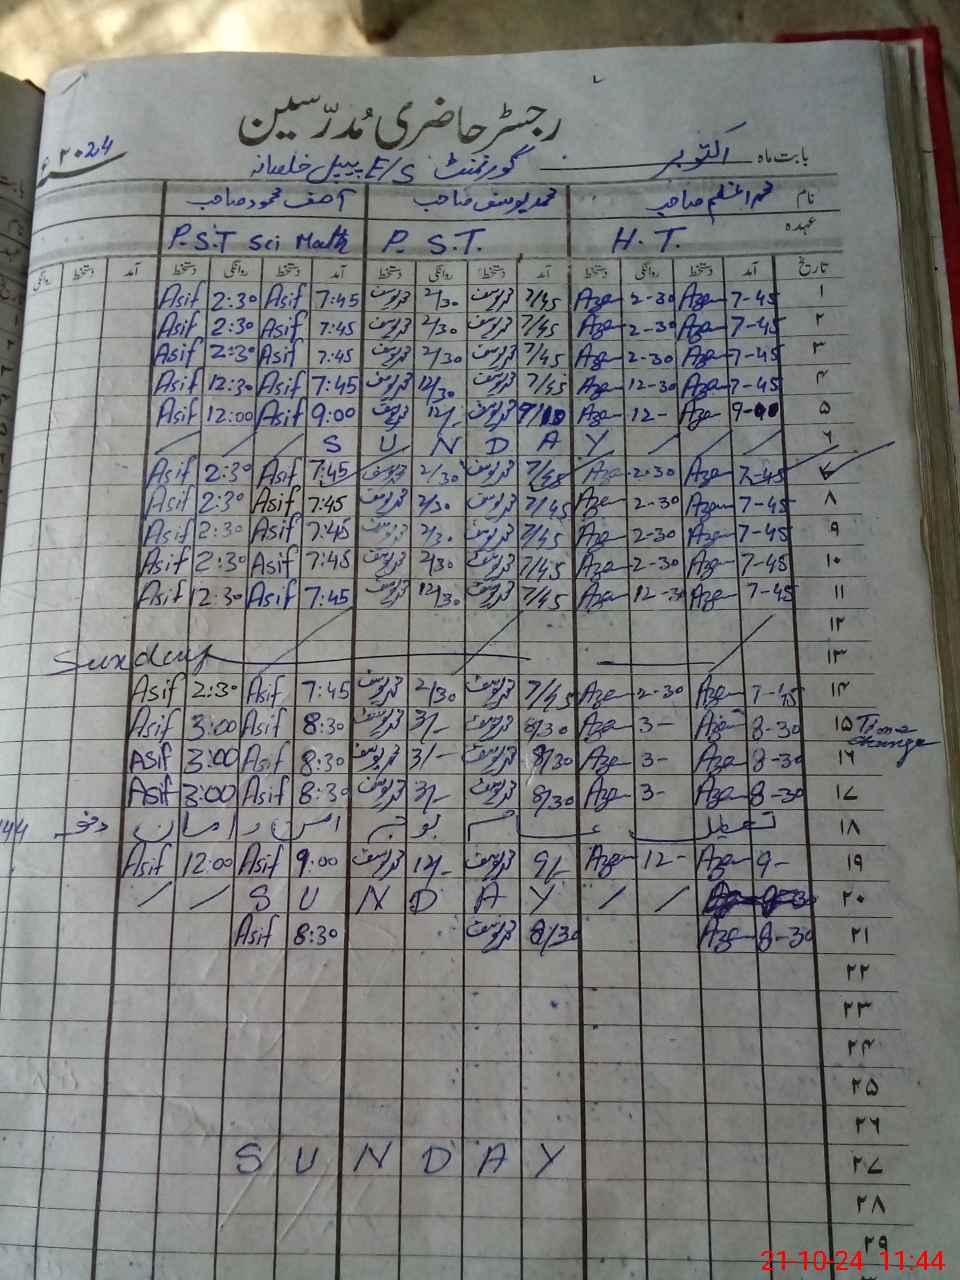 رجسٹر حاضری مُدرّسین
بابت ماہ اکتوبر گورنمنٹ E/S پیپل خلصانہ ۲۰24ء
نام محمد اعظم صاحب محمد یوسف صاحب آصف محمود صاحب
عہدہ H. T. P. S.T. P.S.T Sci Math
تاریخ آمد دستخط روانگی دستخط آمد دستخط روانگی دستخط آمد دستخط روانگی دستخط آمد دستخط روانگی
۱ 7-45 Azam 2-30 Azam 7/45 محمد یوسف 2/30 محمد یوسف 7:45 Asif 2:30 Asif
۲ 7-45 Azam 2-30 Azam 7/45 محمد یوسف 2/30 محمد یوسف 7:45 Asif 2:30 Asif
۳ 7-45 Azam 2-30 Azam 7/45 محمد یوسف 2/30 محمد یوسف 7:45 Asif 2:30 Asif
۴ 7-45 Azam 12-30 Azam 7/45 محمد یوسف 12/30 محمد یوسف 7:45 Asif 12:30 Asif
۵ 9-00 Azam 12- Azam محمد یوسف 12/- محمد یوسف 9:00 Asif 12:00 Asif
۶ S U N D A Y
۷ 7-45 Azam 2-30 Azam 7/45 محمد یوسف 2/30 محمد یوسف 7:45 Asif 2:30 Asif
۸ 7-45 Azam 2-30 Azam 7/45 محمد یوسف 2/30 محمد یوسف 7:45 Asif 2:30 Asif
۹ 7-45 Azam 2-30 Azam 7/45 محمد یوسف 2/30 محمد یوسف 7:45 Asif 2:30 Asif
۱۰ 7-45 Azam 2-30 Azam 7/45 محمد یوسف 2/30 محمد یوسف 7:45 Asif 2:30 Asif
۱۱ 7-45 Azam 12-30 Azam 7/45 محمد یوسف 12/30 محمد یوسف 7:45 Asif 12:30 Asif
۱۲
۱۳ Sunday
۱۴ 7-45 Azam 2-30 Azam 7/45 محمد یوسف 2/30 محمد یوسف 7:45 Asif 2:30 Asif
۱۵ 8-30 Azam 3- Azam 8/30 محمد یوسف 3/- محمد یوسف 8:30 Asif 3:00 Asif
Time change
۱۶ 8-30 Azam 3- Azam 8/30 محمد یوسف 3/- محمد یوسف 8:30 Asif 3:00 Asif
۱۷ 8-30 Azam 3- Azam 8/30 محمد یوسف 3/- محمد یوسف 8:30 Asif 3:00 Asif
۱۸ تعطیل عام بوجہ امن و امان دفعہ 144
۱۹ 9- Azam 12- Azam 9/- محمد یوسف 12/- محمد یوسف 9:00 Asif 12:00 Asif
۲۰ S U N D A Y
۲۱ 8-30 Azam 8/30 محمد یوسف 8:30 Asif
۲۲
۲۳
۲۴
۲۵
۲۶
۲۷ S U N D A Y
۲۸
۲۹
21-10-24 11:44